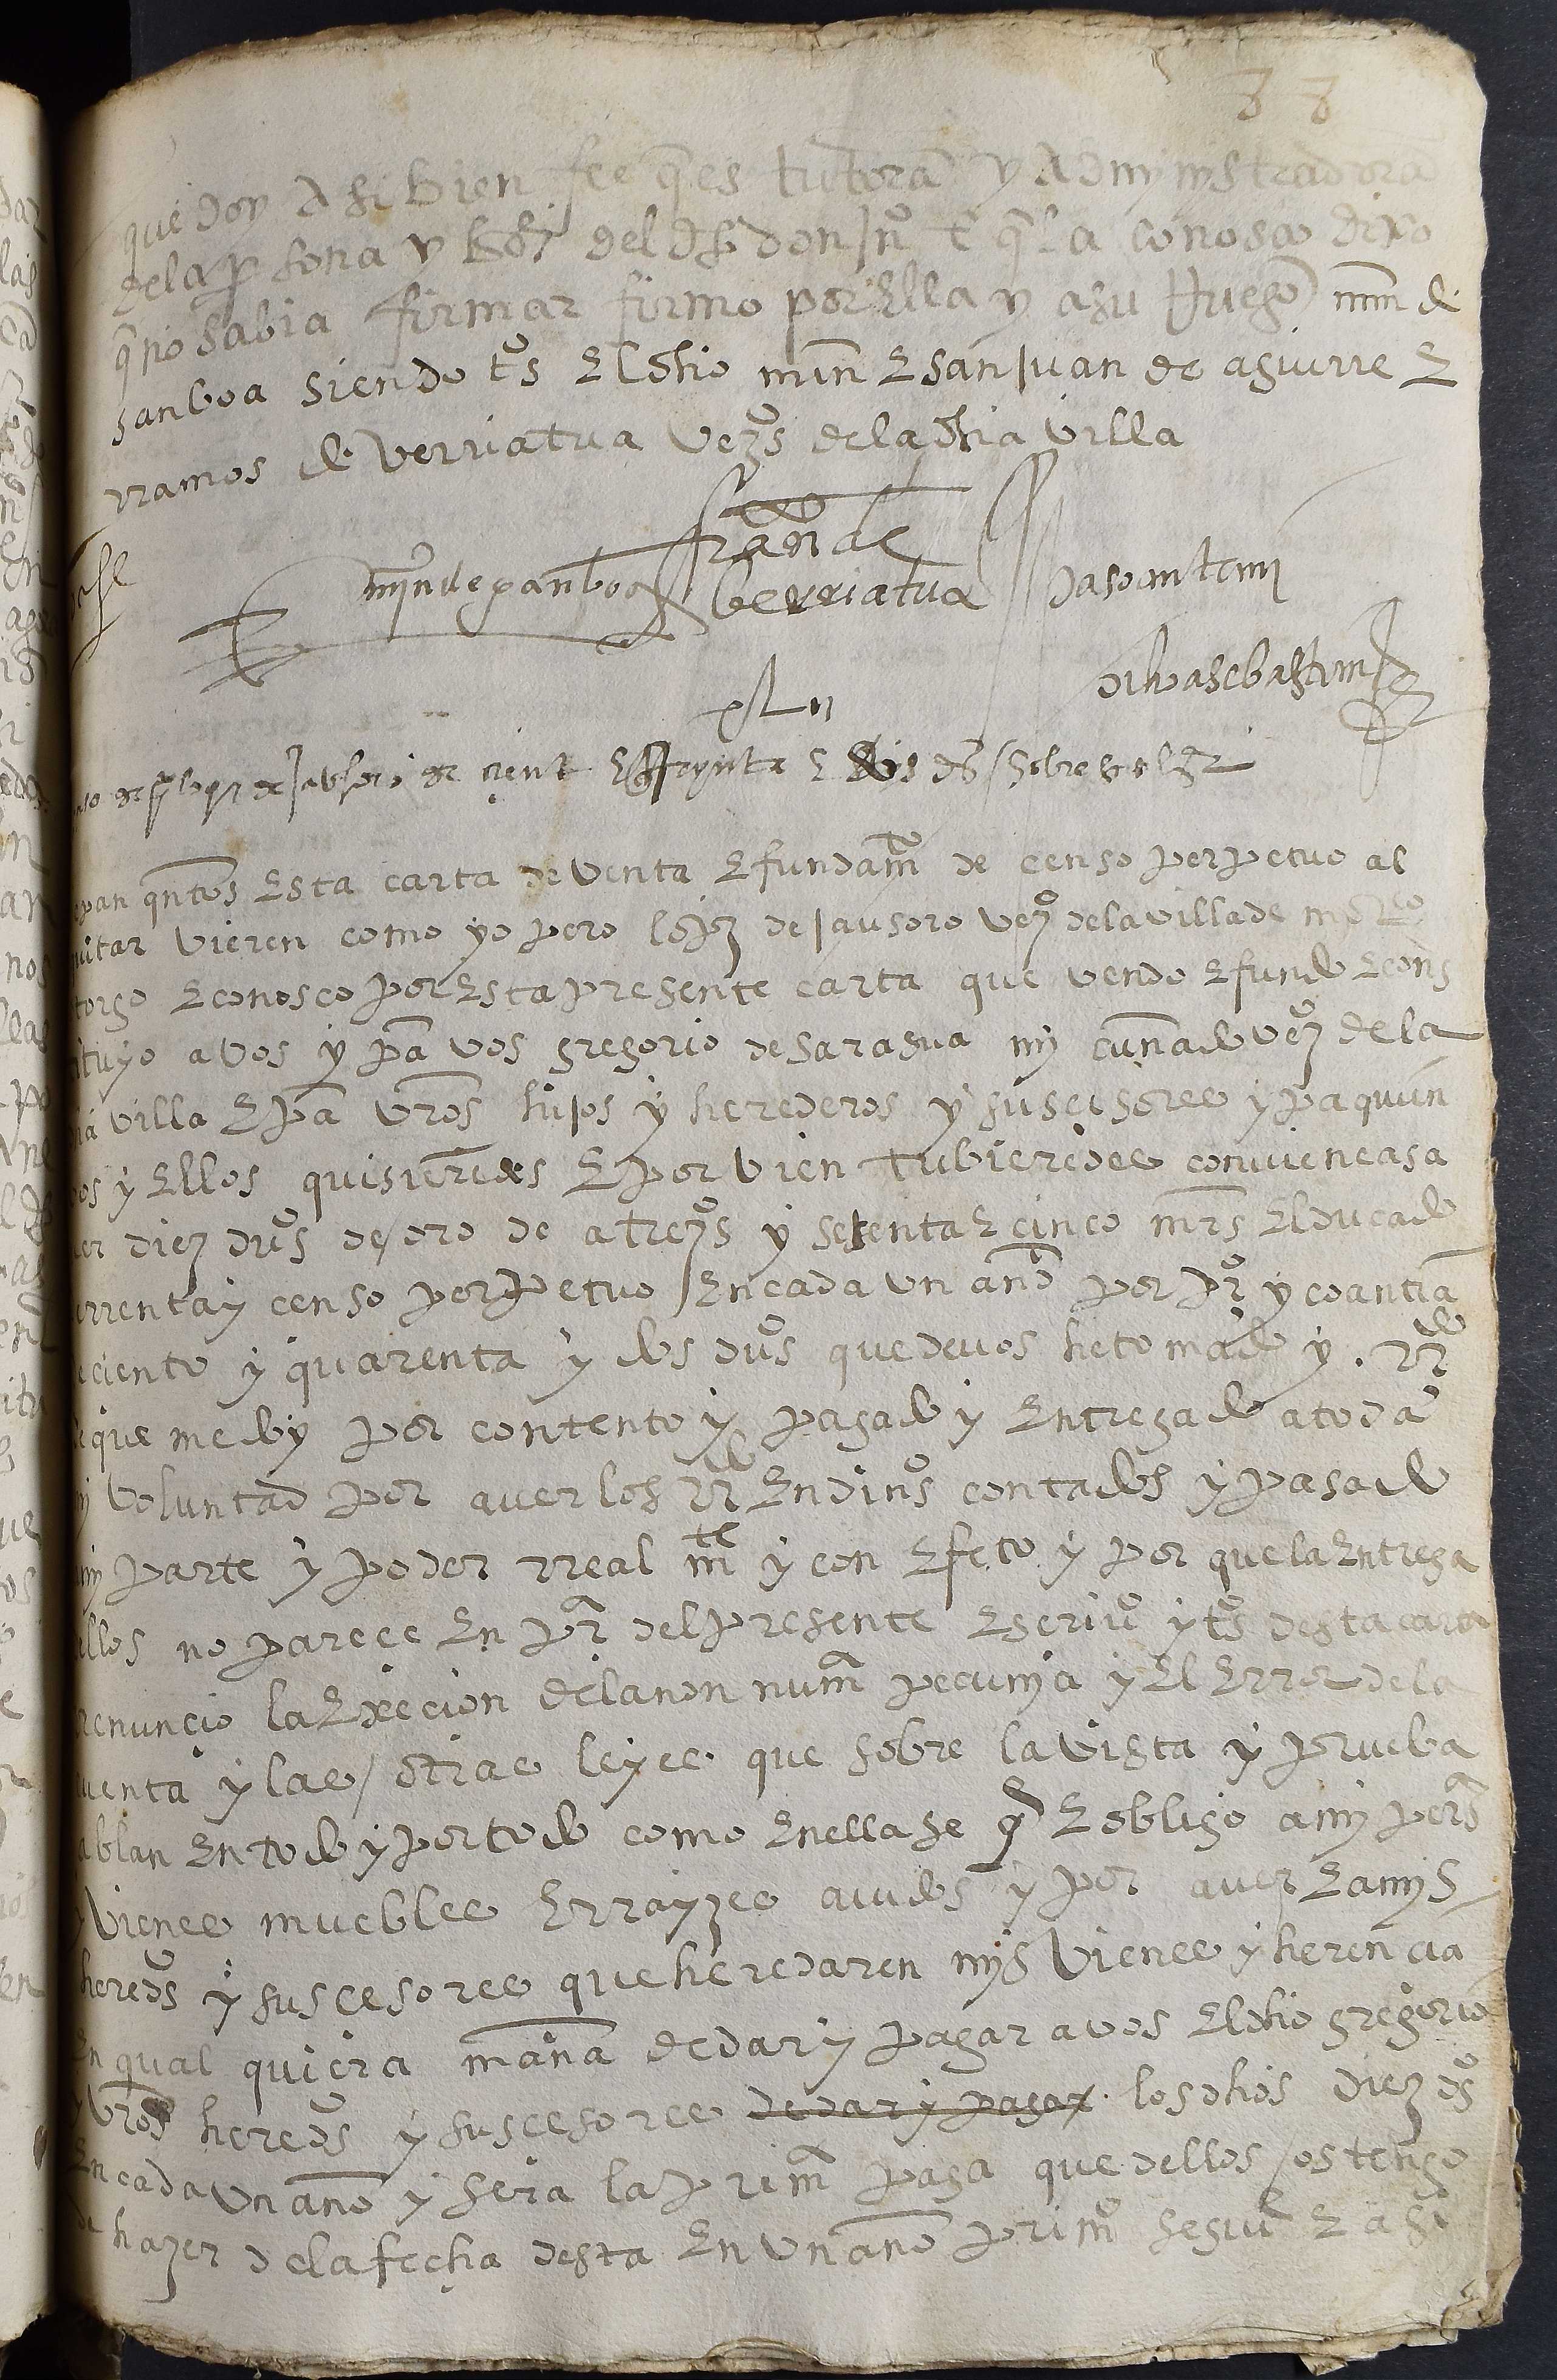 88
que doy A si bien fee q̃ es tutora y Admynystradora
dela p sona y del don Ju° q̃ la conosco dixo
q̃ no sabia firmar firmo por Ella y a su Ruego mīn de
sanboa siendo t°s El dho mīn E san juan de aguirre E
rramos de verriatua vez°s dela dha villa
myn de xanboa fran de berriatua Paso ante my
ochoa sebastian
xLii
de p° lopez de jausoro de cient E E dos d°s sobre
epan qntos Esta carta de venta E fundam° de censo perpetuo al
quitar vieren como yo pero lopez de jausoro vez° dela villa de
torgo E conosco por Esta presente carta que vendo E fundo E cons
tituyo a vos y pa vos gregorio de saragua my cunado vez° de la
dha villa E pa vros hijos y herederos y suscesores y pa quien
vos y Ellos quisieredes E por vien tubieredes conviene a sa
ver diez du°s de oro de a trez°s y sesenta E cinco mrs El ducado
de rrenta y censo perpetuo En cada un año por pr° y coantia
de ciento y quarenta y dos du°s que de vos he tomado y rrdo
de que me doy por contento y pagado y Entregado a toda
my voluntad por aver los rrdo En din°s contados y pasado
a my parte y poder rreal mte y con Efeto y por que la Entrega
dellos no parece En pr° del presente Escriu° y t°s desta carta
rrenuncio la Execion dela non num pecunya y El Error dela
cuenta y las otras leyes que sobre la vista y prueba
ablan En todo y por todo como En ellas se q E obligo a my pers
y vienes muebles E rrayzes avidos y por aver E a mys
hered°s y suscesores que heredaren mys vienes y herencia
En qual quiera manā de dar y pagar a vos El dho gregorio
y vros hered°s y suscesores de dar y pagar los dhos diez d°s
En cada un año y sera la prim paga que dellos os tengo
de hazer dela fecha desta En un año prim° seguido E asi